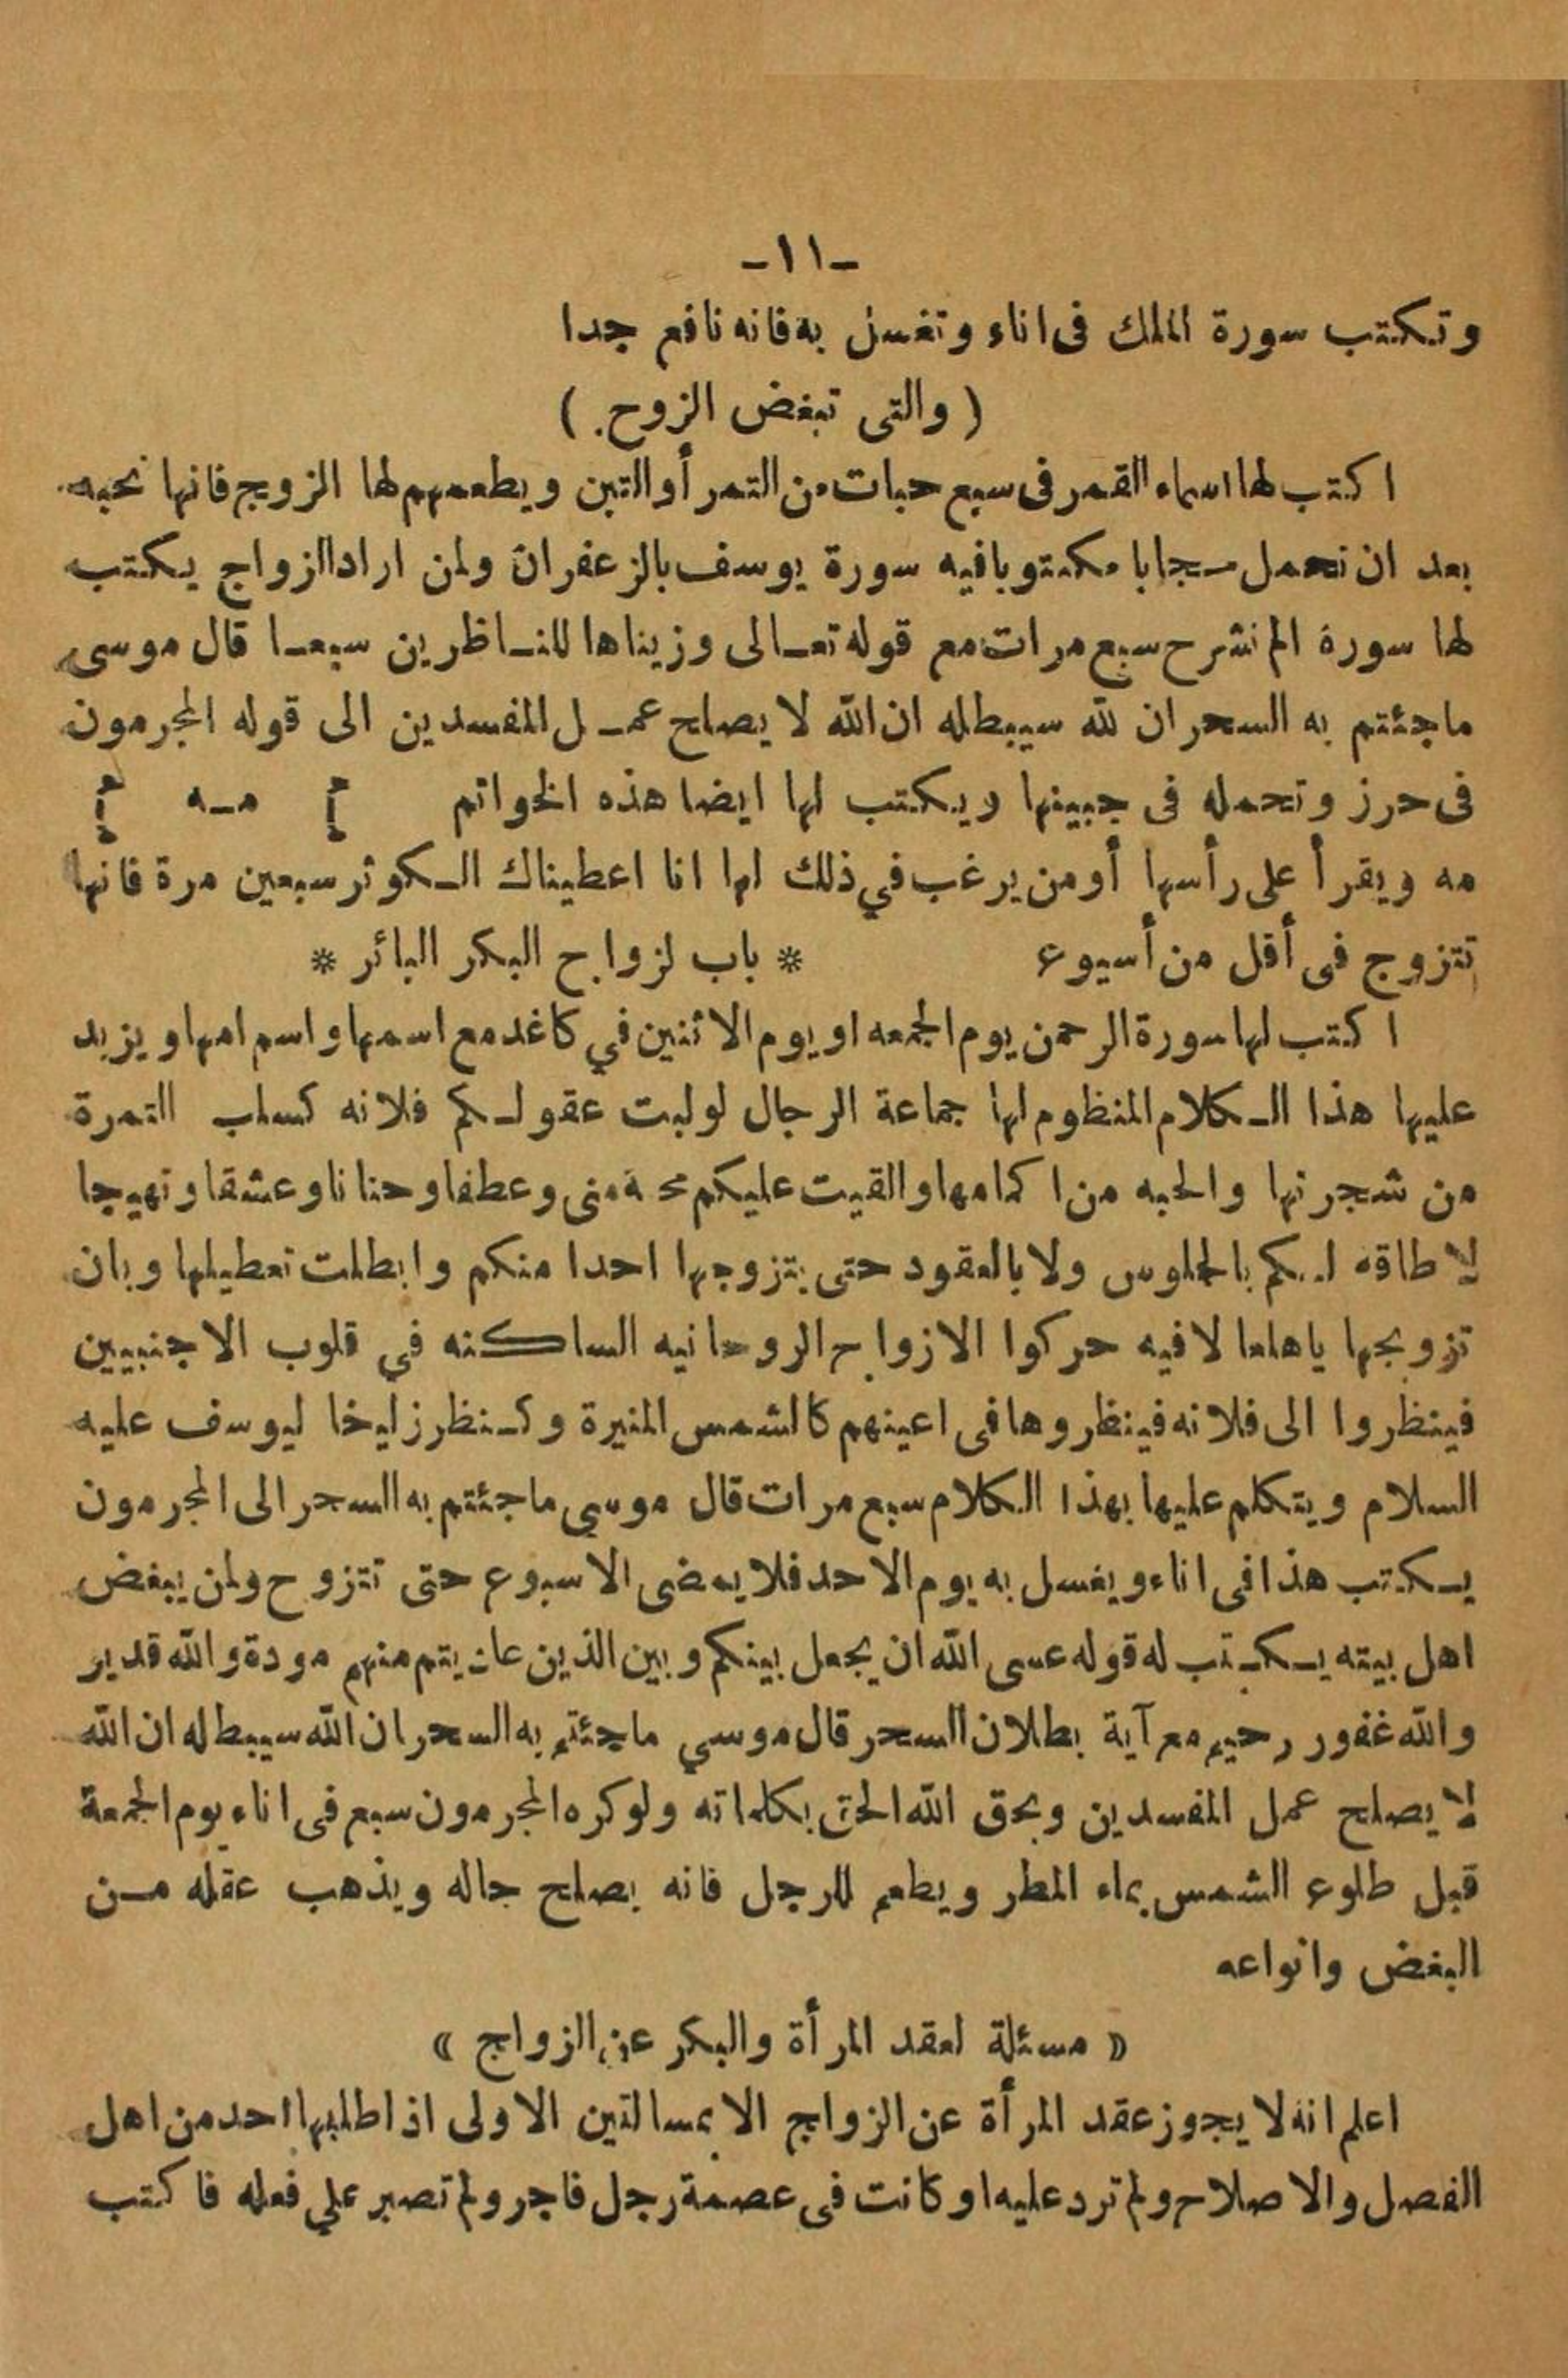 -١١-
وتكتب سورة الملك فى اناء وتغسل به فانه نافع جدا
( والتى تبغض الزوج )
اكتب لها اسماء القمر فى سبع حبات من التمر أو التين ويطعمهم لها الزوج فانها تحبه
بعد ان تحمل حجابا مكتوبا فيه سورة يوسف بالزعفران ولمن اراد الزواج يكتب
لها سورة الم نشرح سبع مرات مع قوله تعالى وزيناها للناظرين سبعا قال موسى
ماجئتم به السحر ان لله سيبطله ان الله لا يصلح عمل المفسدين الى قوله المجرمون
فى حرز وتحمله فى جبينها ويكتب لها ايضا هذه الخواتم مه
مه ويقرأ على رأسها أو من يرغب في ذلك لها انا اعطيناك الكوثر سبعين مرة فانها
تتزوج فى أقل من أسبوع * باب لزواج البكر البائر *
اكتب لها سورة الرحمن يوم الجمعه او يوم الاثنين في كاغد مع اسمها واسم امها ويزيد
عليها هذا الكلام المنظوم لها جماعة الرجال لو لبت عقولكم فلانه كسلب التمرة
من شجرتها والحبه من اكمامها والقيت عليكم محبة منى وعطفا وحنانا وعشقا وتهيجا
لا طاقه لكم بالجلوس ولا بالعقود حتى يتزوجها احدا منكم وابطلت تعطيلها وبان
تزويجها ياهلعا لافيه حركوا الازواج الروحانيه الساكنه في قلوب الاجنبيين
فينظروا الى فلانه فينظروها فى اعينهم كالشمس المنيرة وكنظر زليخا ليوسف عليه
السلام ويتكلم عليها بهذا الكلام سبع مرات قال موسي ماجئتم به السحر الى المجرمون
يكتب هذا فى اناء ويغسل به يوم الاحد فلا يمضى الاسبوع حتى تتزوج ولمن يبغض
اهل بيته يكتب له قوله عسى الله ان يجعل بينكم وبين الذين عاديتم منهم مودة والله قدير
والله غفور رحيم مع آية بطلان السحر قال موسي ماجئتم به السحر ان الله سيبطله ان الله
لا يصلح عمل المفسدين ويحق الله الحق بكلماته ولو كره المجرمون سبع فى اناء يوم الجمعة
قبل طلوع الشمس بماء المطر ويطعم للرجل فانه يصلح حاله ويذهب عقله من
البغض وانواعه
« مسئلة لعقد المرأة والبكر عن الزواج »
اعلم انه لا يجوز عقد المرأة عن الزواج الا بمسالتين الاولى اذا طلبها احد من اهل
الفصل والاصلاح ولم ترد عليه او كانت فى عصمة رجل فاجر ولم تصبر علي فعله فاكتب